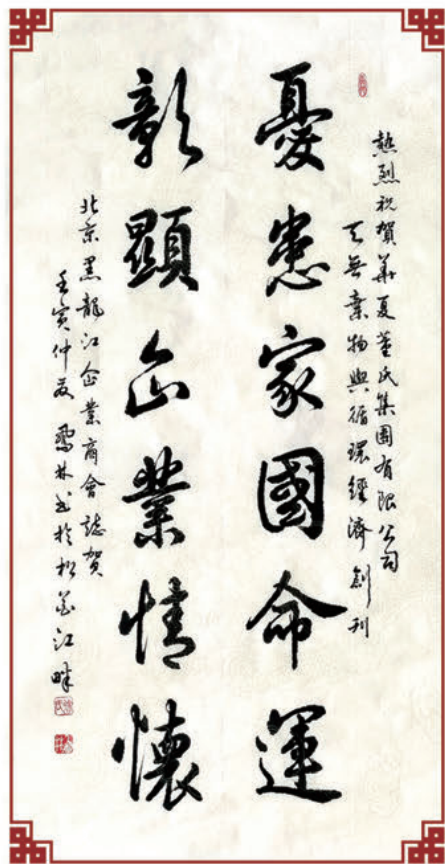 熱烈祝賀華夏董氏集團有限公司
天無棄物與循環經濟創刊
憂患家國命運
彰顯企業情懷
北京黑龍江企業商會誌賀
壬寅仲夏鳳林書於松花江畔